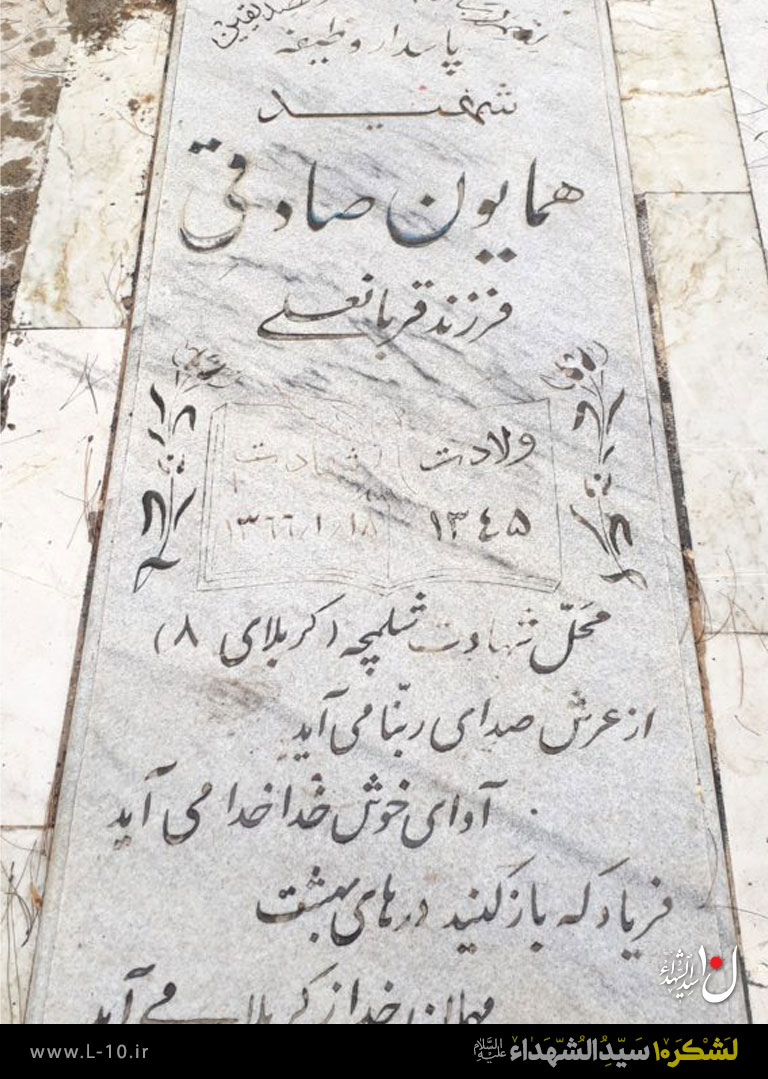 صدیقین
پاسدار وظیفه
شهید
همایون صادقی
فرزند قربانعلی
ولادت
۱۳۴۵
شهادت
۱۳۶۶/۱/۱۸
محلّ شهادت شلمچه (کربلای ۸)
از عرش صدای ربّنا می آید
آوای خوش خُدا خدا می آید
فریاد که باز کنید درهای بهشت
مهمان خدا از کربلا می آید
ل۱۰ سیدالشهداء
www.L-10.ir
لَشْکَر۱۰ سَیِّدُالشُّهَداء علیه السّلام